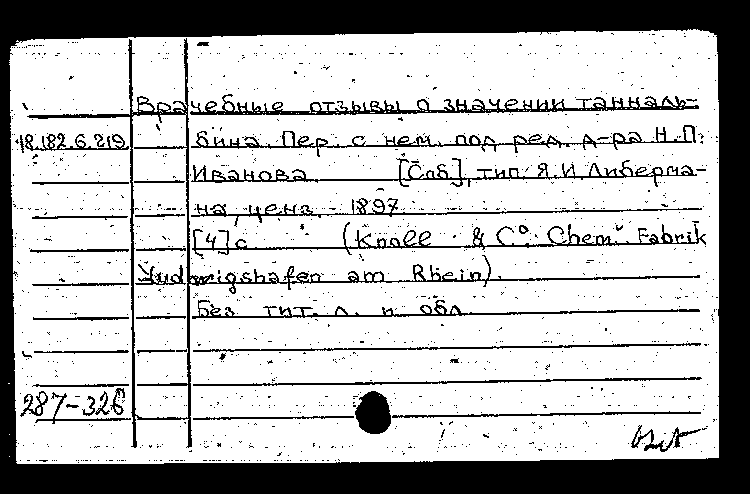 Врачебные отзывы о значении танналь-
18.182.6.219 бина. Пер. с нем. под ред. д-ра Н.П.
Иванова [Спб], тип. Я.И. Либерма-
на, ценз. 1897
[4] с (Knoll & Cº. Chem. Fabrik
Ludwigshafen am Rhein).
Без тит. л. и обл.
287-326